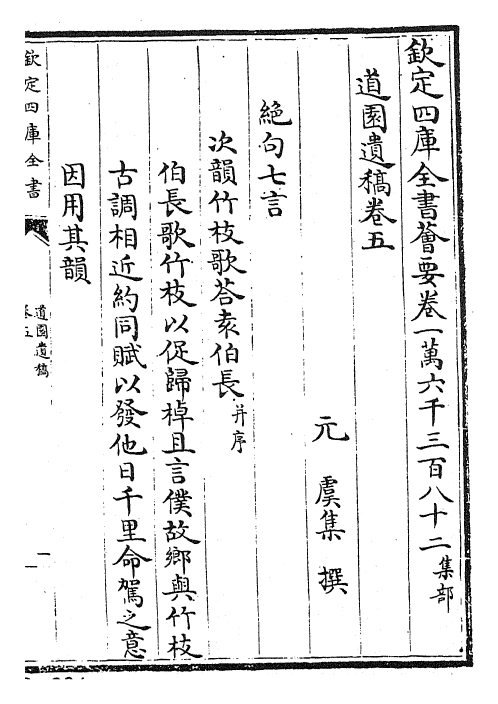 欽定四庫全書薈要卷一萬六千三百八十二集部
道園遺稿卷五
元　虞集　撰
絶句七言
次韻竹枝歌荅袁伯長并序
伯長歌竹枝以促歸棹且言僕故鄉與竹枝
古調相近約同賦以發他日千里命駕之意
因用其韻
欽定四庫全書
道園遺稿
卷五
一